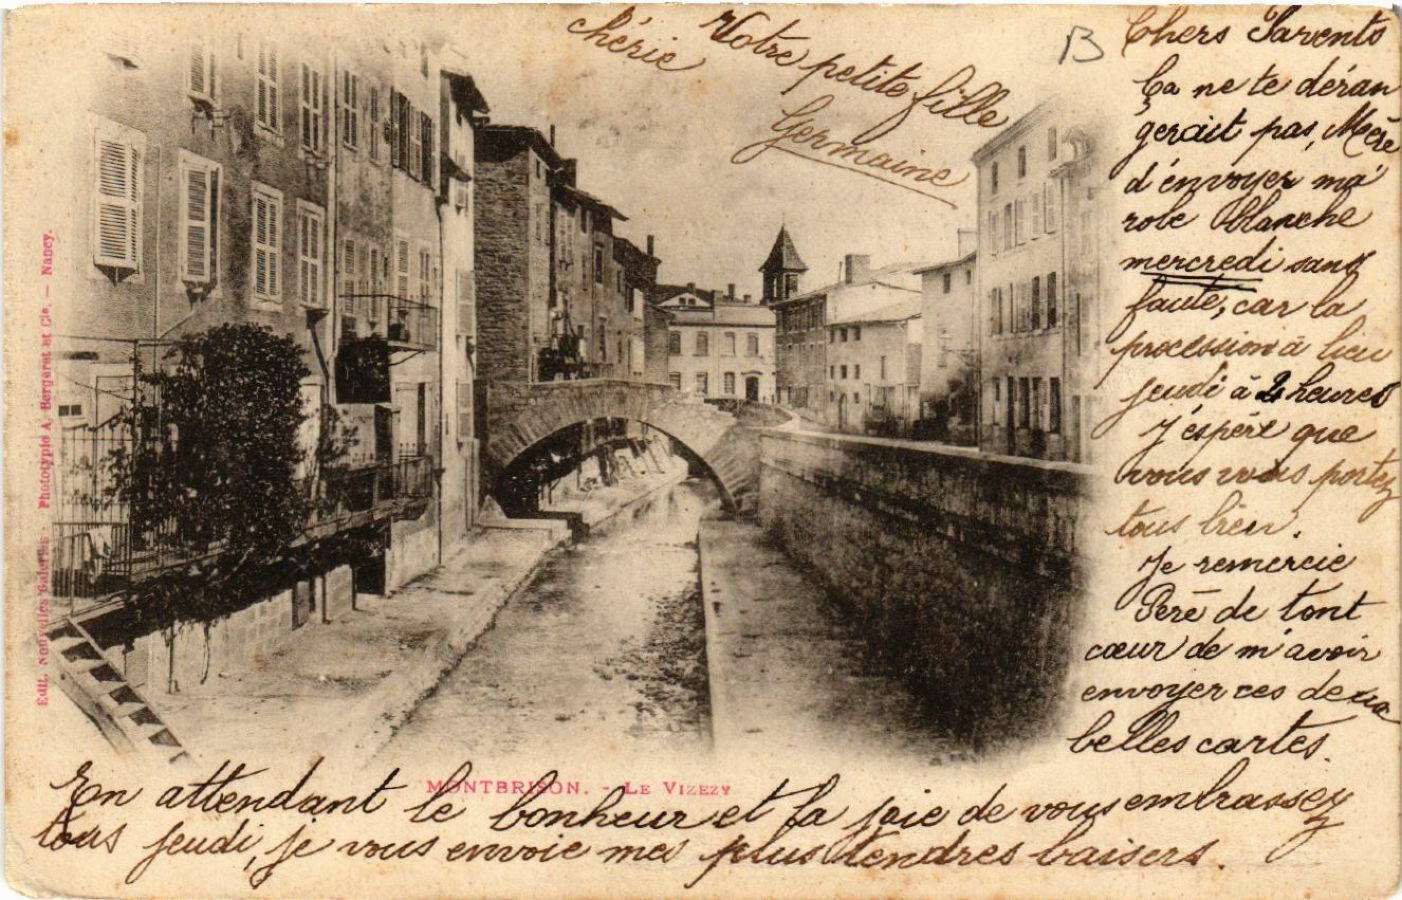 B
Chers Parents
Ça ne te déran
gerait pas, Mère
d'envoyer ma
robe blanche
mercredi sans
faute, car la
procession à lieu
jeudi à 2 heures
J'espère que
vous vous portez
tous bien.
Je remercie
Père de tout
cœur de m'avoir
envoyer ces deux
belles cartes.
En attendant le bonheur et la joie de vous embrassez
tous jeudi, je vous envoie mes plus tendres baisers.
Votre petite fille
chérie
Germaine
MONTBRISON. - LE VIZEZY
Edit. Nouvelles Galeries - Phototypie A. Bergeret et Cie. — Nancy.